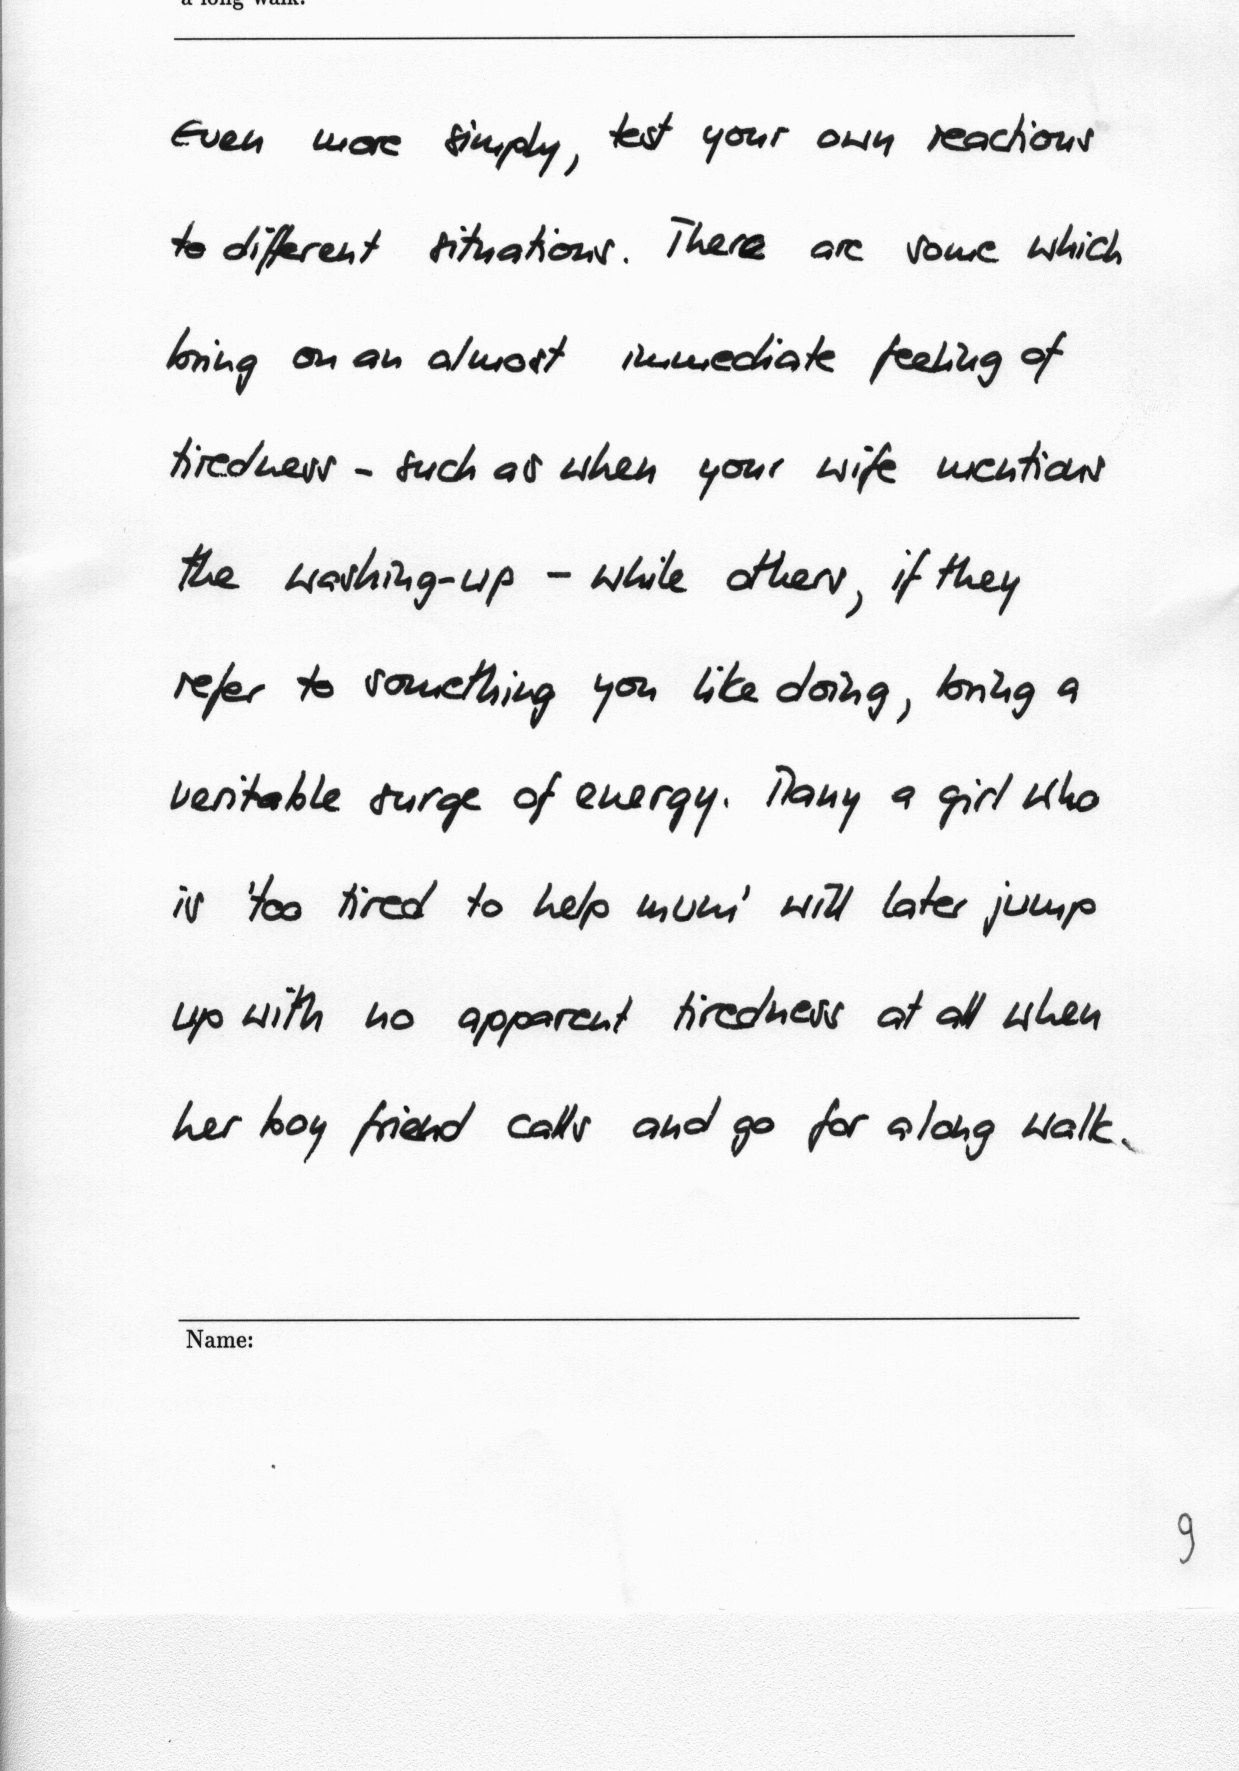 a long walk.
Even more simply, test your own reactions
to different situations. There are some which
bring on an almost immediate feeling of
tiredness - such as when your wife mentions
the washing-up - while others, if they
refer to something you like doing, bring a
veritable surge of energy. Many a girl who
is 'too tired to help mum' will later jump
up with no apparent tiredness at all when
her boy friend calls and go for a long walk.
Name:
9